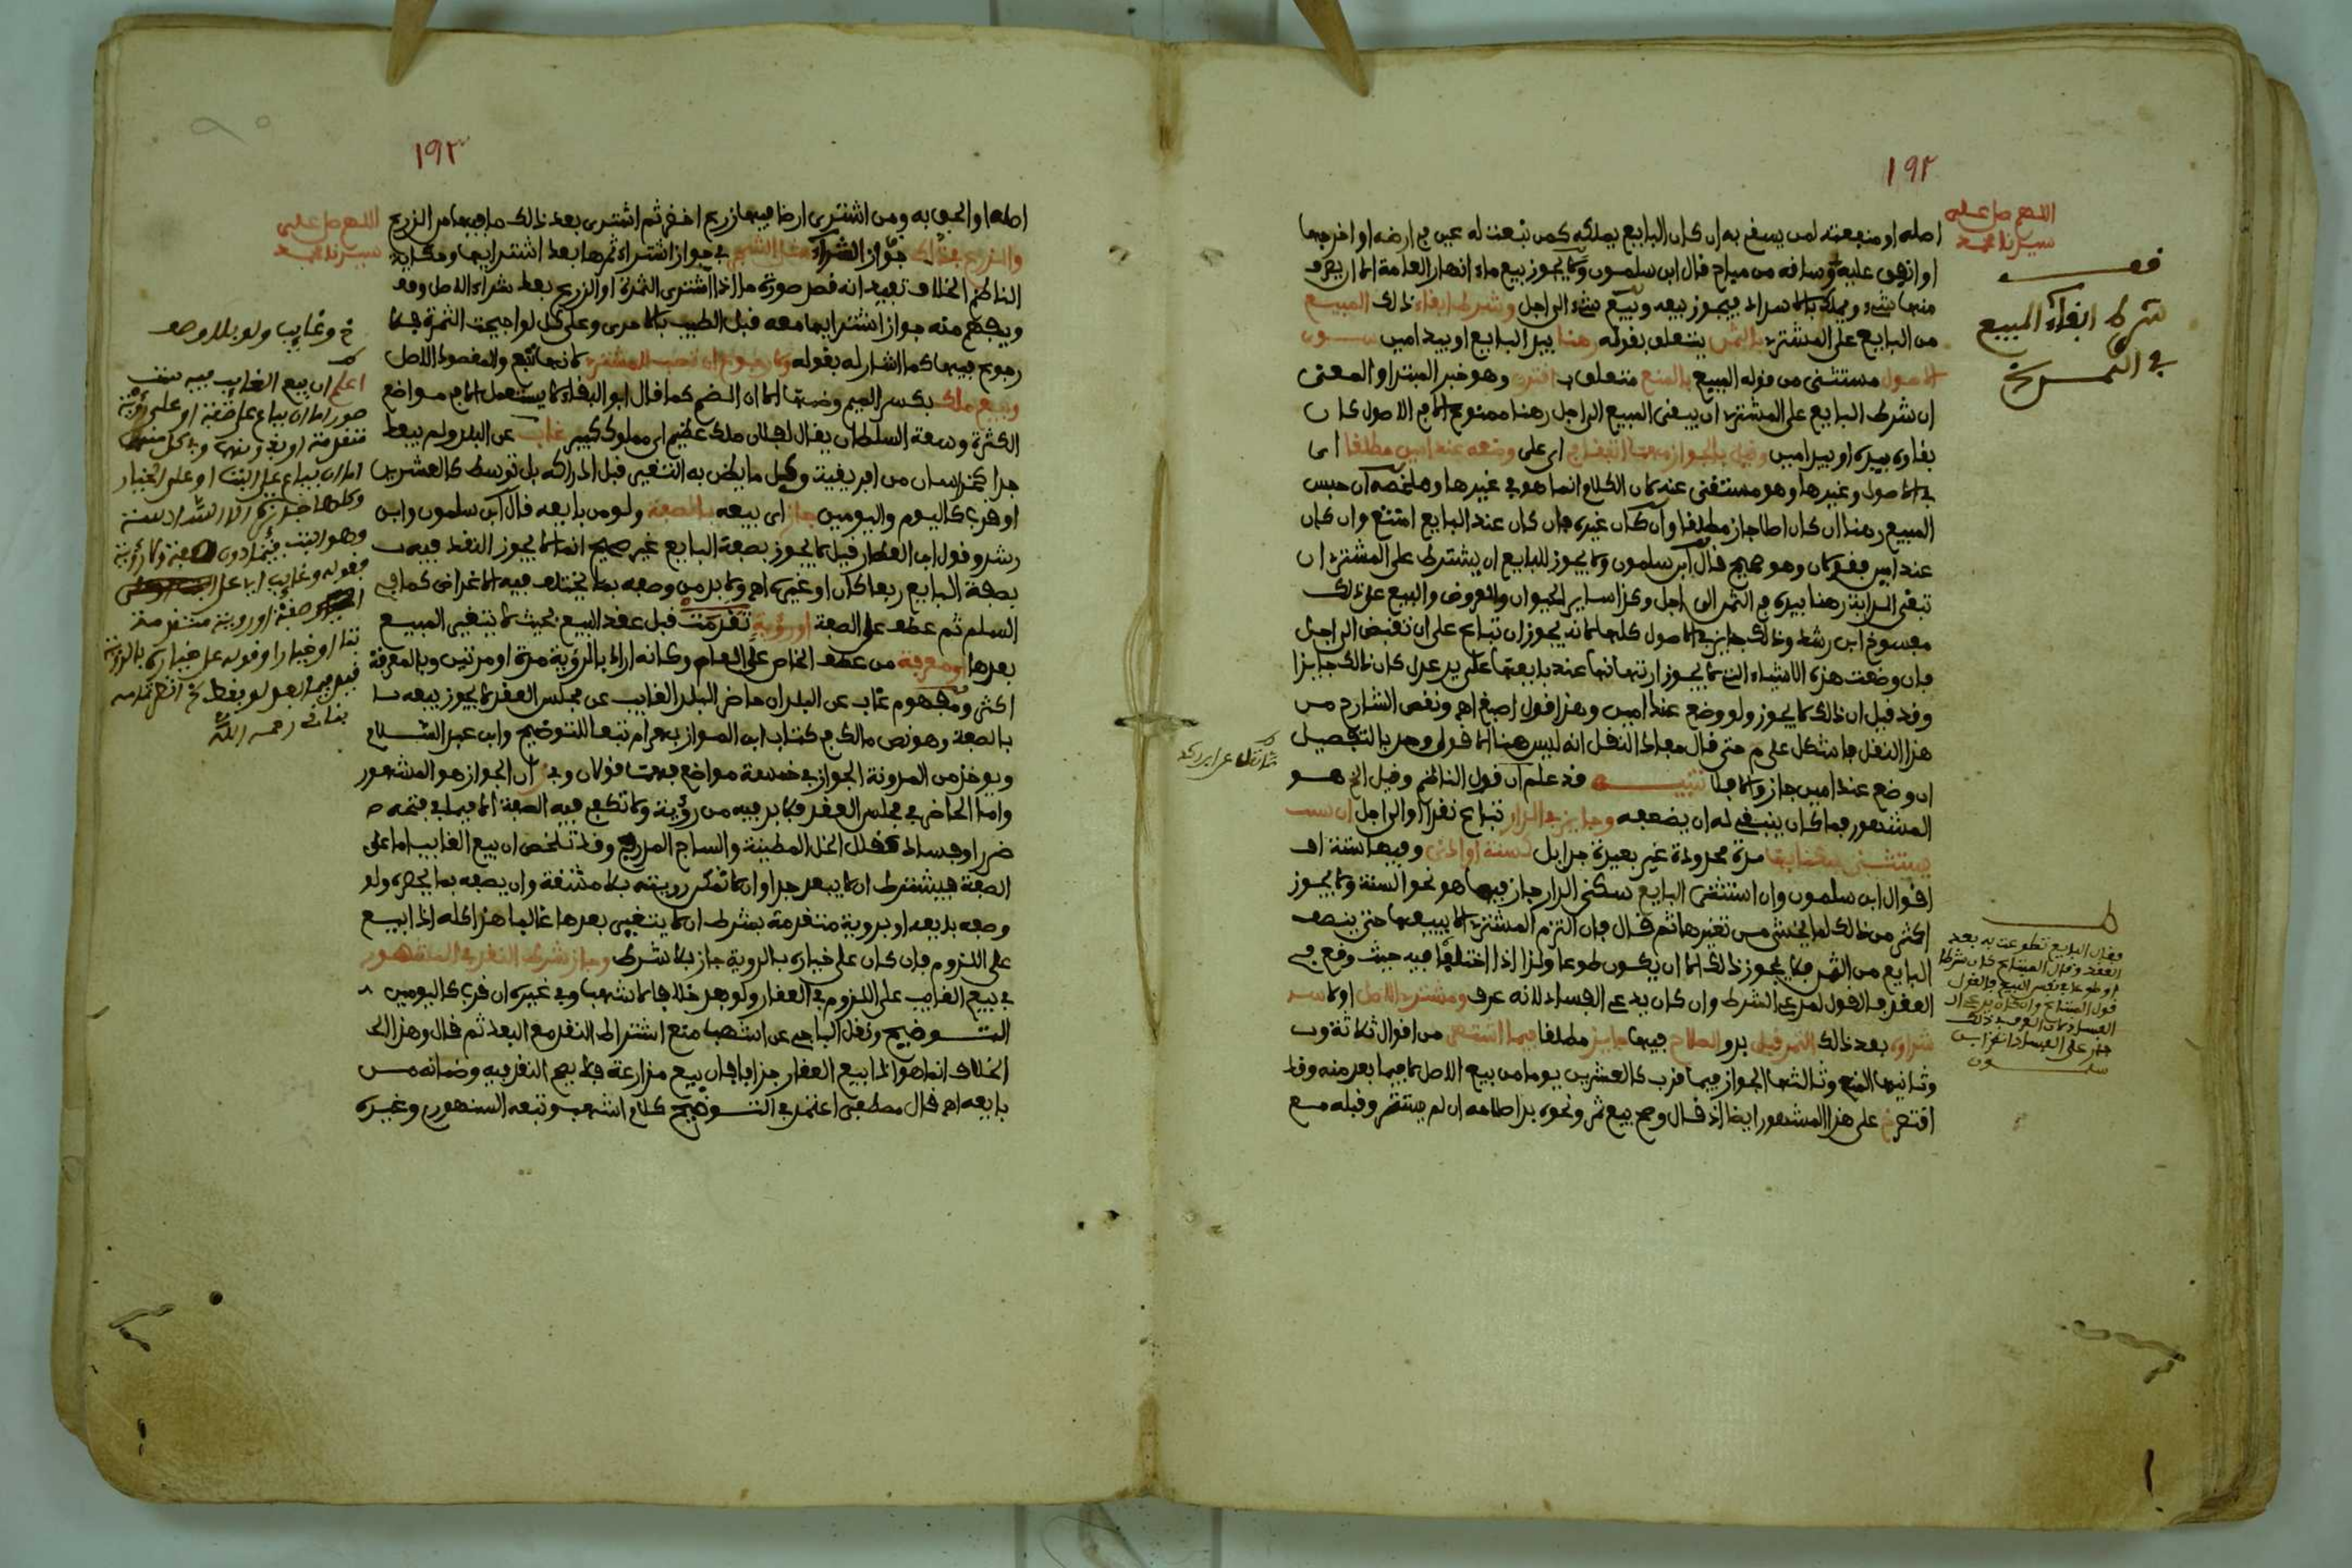 ١٩٢
اللهم صل على
سيدنا محمد
قف
شرط ابقاء المبيع
في الثمن
اصله او منبعته لمن يسقى به ان كان البايع يملكه كمن نبعت له عين في ارضه او اخرجها
او انفق عليه وساقه من مباح قال ابن سلمون ولا يجوز بيع ماء انهار العامة الا ان يعرف
منها شيء ويملك بالاسراد فيجوز بيعه وبيع شيء الى اجل وشرط ابقاء ذلك المبيع
من البايع على المشتري بالثمن يتعلق بقوله رهنا بيد البايع او بيد امين سوى
الاصول مستثنى من قوله المبيع بالمنع متعلق ب اقترن وهو خبر المبتدا والمعنى
ان شرط البايع على المشتري ان يبقى المبيع الى اجل رهنا ممنوع الا في الاصول كان
بقاوه بيده او بيد امين وقيل بالجواز مهما اتفقا في اي على وضعه عند امين مطلقا اي
في الاصول وغيرها وهو مستغنى عنه لان الكلام انما هو في غيرها وملخصه ان حبس
المبيع رهنا ان كان اصلا جاز مطلقا وان كان غيره فان كان عند البايع امتنع وان كان
عند امين فقولان وهو صحيح قال ابن سلمون ولا يجوز للبايع ان يشترط على المشتري ان
تبقى الدابة رهنا بيده في الثمن الى اجل وكذا ساير الحيوان والعروض والبيع على ذلك
مفسوخ ابن رشد وذلك جايز في الاصول كلها لانه يجوز ان تباع على ان تقبض الى اجل
فان وضعت هذه الاشياء التي لا يجوز ارتهانها عند بايعها على يد عدل كان ذلك جايزا
وقد قيل ان ذلك لا يجوز ولو وضع عند امين وهذا قول اصبغ اهـ ونقص الشارح من
هذا النقل ما شكل على م حتى قال معاد النقل انه ليس هنا الا قول وحد بالتفصيل
ان وضع عند امين جاز والا فلا تنبيه قد علم ان قول الناظم وقيل الخ هو
المشهور فما كان ينبغي له ان يضعفه وجايز في الدار تباع نقدا او الى اجل ان
يستثنى سكنى بها مدة محدودة غير بعيدة جدا بل كسنة او ادنى وفيها ستة
اقوال ابن سلمون وان استثنى البايع سكنى الدار جاز فيها هو نحو السنة ولا يجوز
اكثر من ذلك لما يخشى من تغيرها ثم قال فان التزم المشتري الا يبيعها حتى ينصف
البايع من الثمن فلا يجوز ذلك الا ان يكون طوعا ولذا اذا اختلفا فيه حيث وقع في
العقد فالقول لمدعي الشرط وان كان يدعي الفساد لانه عرف ومشتري الاصل اولا
شراوه بعد ذلك الثمر قبل بدو الصلاح فيها جايز مطلقا فيما اشتهر من اقوال ثلاثة
وثانيها المنع وثالثها الجواز فيما قرب كالعشرين يوما من بيع الاصل لا فيما بعد منه وقد
اقتصر خ على هذا المشهور ايضا اذ قال وصح بيع ثمر ونحوه بدا صلاحه ان لم يستتر وقبله مع
فقال البايع تطوعت به بعد
العقد وقال المبتاع كان شرطا
او طوعا في نفس البيع فالقول
قول المبتاع وان كان يدعي
الفساد لان العرف في ذلك
جار على الفساد انظر ابن
سلمون
١٩٣
اللهم صل على
سيدنا محمد
اصله او الحق به ومن اشترى ارضا فيها زريع اخضر ثم اشترى بعد ذلك ما فيها من الزريع
والزرع في ذلك جواز الشراء مثل الشجر في جواز اشتراء ثمرها بعد اشترايها وحكاية
الناظم الخلاف تفيد انه فصل صورة ما اذا اشترى الثمرة او الزريع بعد شراء الاصل وقد
ويفهم منه جواز اشترايها معه قبل الطيب بالاحرى وعلى كل لو اجيحت الثمرة فلا
رجوع فيها كما اشار له بقوله ولا رجوع ان تصب للمشتري لانها تبع والمقصود الاصل
وبيع ملك بكسر الميم وضمها الا ان الضم كما قال ابو البقاء لا يستعمل الا في مواضع
الكثرة وسعة السلطان يقال لفلان ملك عظيم اي مملوك كبير غاب عن البلد ولم يبعد
جدا كخراسان من افريقية وكل ما يظن به التغير قبل ادراكه بل توسط كالعشرين
او قرب كاليوم واليومين جاز اي بيعه بالصفة ولو من بايعه قال ابن سلمون وابن
رشد وقول ابن العطار قيل لا يجوز بصفة البايع غير صحيح انما لا يجوز النقد فيه
بصفة البايع ربعا كان او غيره اهـ ولا بد من وصفه بما يختلف فيه الاغراض كما في
السلم ثم عطف على الصفة او رؤية تقدمت قبل عقد البيع بحيث لا يتغير المبيع
بعدها ومعرفة من عطف الخاص على العام وكانه اراد بالرؤية مرة او مرتين وبالمعرفة
اكثر ومفهوم غاب عن البلد ان حاضر البلد الغايب عن مجلس العقد لا يجوز بيعه
بالصفة وهو نص مالك في كتاب ابن المواز بهرام تبعا للتوضيح وابن عبد السلام
ويؤخذ من المدونة الجواز في خمسة مواضع فهما قولان وفي ان الجواز هو المشهور
واما الحاضر في مجلس العقد فلا بد فيه من رؤيته ولا تكفي فيه الصفة الا فيما في فتحه
ضرر او فساد كقلال الخل المطينة والساج المدرج وقد تلخص ان بيع الغايب اما على
الصفة فيشترط ان لا يبعد جدا وان لا تمكن رويته بلا مشقة وان يصفه بما يحصره ولو
وصفه بايعه او بروية متقدمة بشرط ان لا يتغير بعدها غالبا هذا كله اذا بيع
على اللزوم فان كان على خياره بالروية جاز بلا شرط وجاز شرط النقد في المشهور
في بيع الغايب على اللزوم في العقار ولو بعد خلافا لاشهب وفي غيره ان قرب كاليومين
التوضيح ونقل الباجي عن اشهب منع اشتراط النقد مع البعد ثم قال وهذا
الخلاف انما هو اذا بيع العقار جزافا فان بيع مزارعة فلا يصح النقد فيه وضمانه من
بايعه اهـ قال مصطفى اعتمد في التوضيح كلام اشهب وتبعه السنهوري وغيره
خ وغايب ولو بلا وصف
اعلم ان بيع الغايب فيه ست
صور اما ان يباع على صفة او على رؤية
متقدمة او بدونهما وفي كل منها
اما ان يباع على البت او على الخيار
وكلها جايزة الا السادسة
وهو البت فيما دون صفة ولا رؤية
فقوله وغايب اي على
صفة او روية متقدمة
بتا او خيارا وقوله على خياره بالرؤية